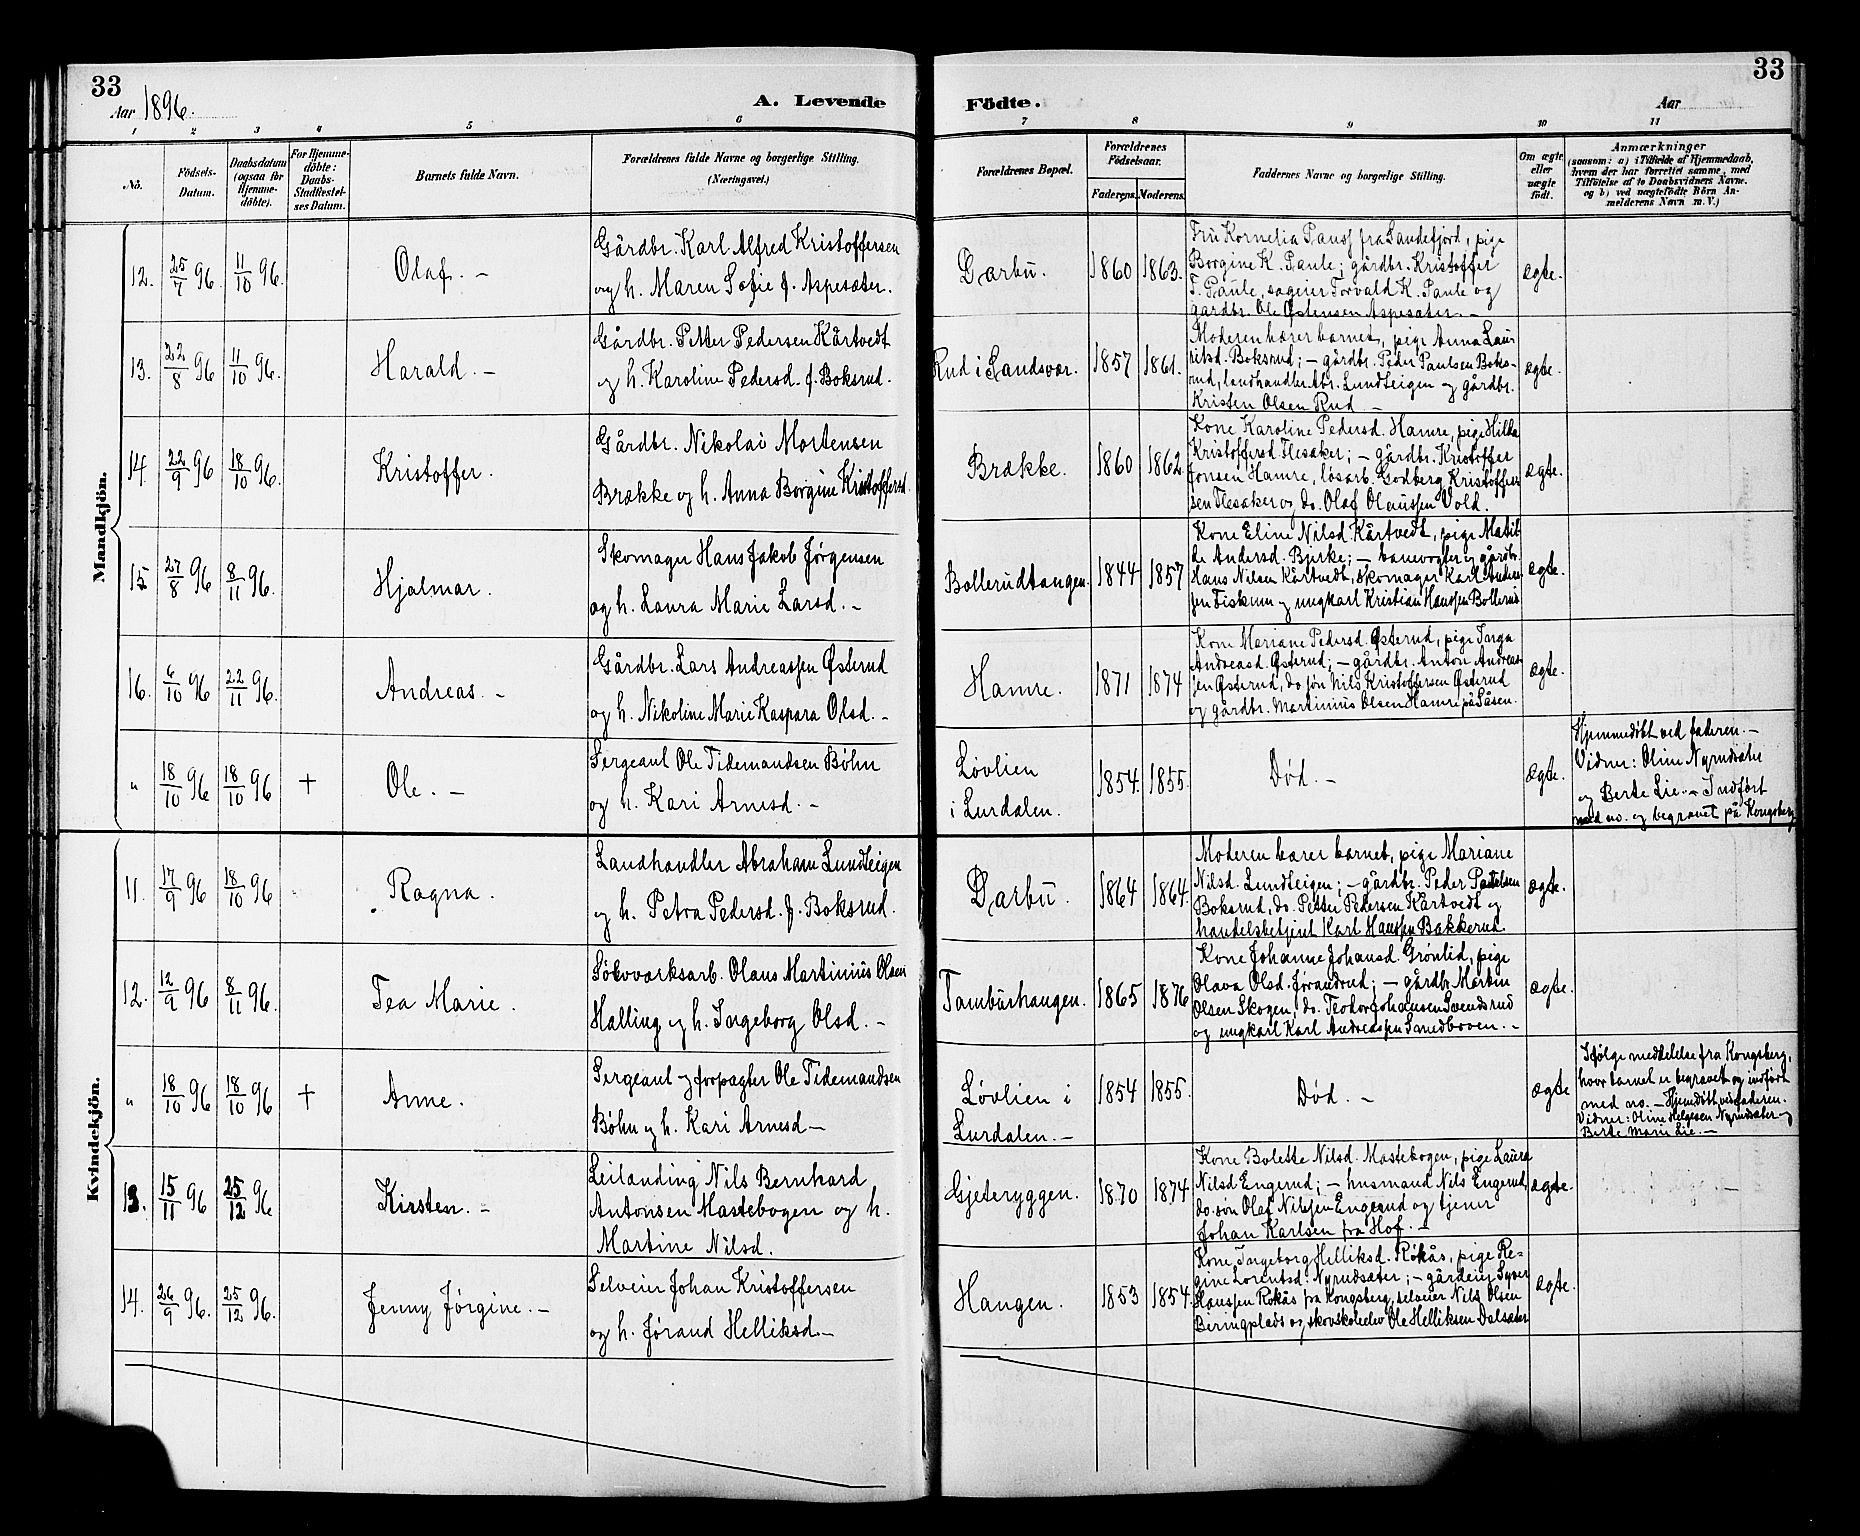 33
Aar 1896.
A. Levende
Födte.
Aar
33
1 2 3 4 5 6 7 8 9 10 11
No.
Födsels-
Datum.
Daabsdatum
(ogsaa for
Hjemme-
döbte).
For Hjemme-
döbte:
Daabs-
Stadfæstel-
ses Datum.
Barnets fulde Navn.
Forældrenes fulde Navne og borgerlige Stilling.
(Næringsvei.)
Forældrenes Bopæl.
Forældrenes
Födselsaar.
Faderens. Moderens.
Faddernes Navne og borgerlige Stilling.
Om ægte
eller
uægte
födt.
Anmærkninger
(saasom: a) i Tilfælde af Hjemmedaab,
hvem der har forrettet samme, med
Tilföielse af to Daabsvidners Navne,
og b) ved uægtefödte Börn An-
melderens Navn m. V.)
Mandkjön.
12. 25/7 96. 11/10 96. Olaf. —
Gårdbr. Karl Alfred Kristoffersen
og h. Maren Sofie f. Aspesæter.
Darbu. 1860 1863.
Fru Kornelia Pauss fra Sandefjord, pige
Borgine K. Paule; gårdbr. Kristoffer
T. Paule, sageier Torvald K. Paule og
gårdbr. Ole Østensen Aspesæter. —
ægte.
13. 22/8 96 11/10 96. Harald. —
Gårdbr. Petter Pedersen Kårtvedt
og h. Karoline Pedersd. f. Boksrud.
Rud i Sandsvær. 1857 1861.
Moderen bærer barnet, pige Anna Lau-
ritsd. Boksrud; — gårdbr. Peder Paulsen Boks-
rud, landhandler Abr. Lundteigen og gårdbr.
Kristen Olsen Rud —
ægte.
14. 22/9 96 18/10 96. Kristoffer.
Gårdbr. Nikolai Mortensen
Brække og h. Anna Borgine Kristoffersd.
Brække. 1860 1862.
Kone Karoline Pedersd. Hamre, pige Hilda
Kristoffersd. Flesaker; — gårdbr. Kristoffer
Jonsen Hamre, løsarb. Godberg Kristoffer-
sen Flesaker og do. Olaf Olaussen Vold.
ægte.
15 27/8 96 8/11 96. Hjalmar.
Skomager Hans Jakob Jørgensen
og h. Laura Marie Larsd. —
Bollerudtangen. 1844 1857
Kone Eline Nilsd. Kårtvedt, pige Matil-
de Andersd. Bjerke; — banevogter og gårdbr.
Hans Nilsen Kårtvedt, skomager Karl Ander-
sen Fiskum og ungkarl Kristian Hanssen Bollerud
ægte.
16. 6/10 96 22/11 96. Andreas. —
Gårdbr. Lars Andreassen Østerud
og h. Nikoline Marie Kaspara Olsd. —
Hamre. 1871 1874
Kone Mariane Pedersd. Østerud, pige Inga
Andreasd. Østerud; — gårdbr. Anton Andreas-
sen Østerud, do. søn Nils Kristoffersen Østerud
og gårdbr. Martinius Olsen Hamre på Såsen.
ægte.
" 18/10 96 18/10 96 + Ole. —
Sergeant Ole Tidemandsen Bøhn
og h. Kari Arnesd. —
Løvlien
i Lurdalen. 1854. 1855.
Død. —
ægte.
Hjemmedøbt ved faderen. —
Vidner: Oline Nyrudsæter
og Berte Lie. — Indført
med no. og begravet på Kongsberg
Kvindekjön.
11. 17/9 96 18/10 96 Ragna.
Landhandler Abraham Lundteigen
og h. Petra Pedersd. f. Boksrud.
Darbu. 1864 1864.
Moderen bærer barnet, pige Mariane
Nilsd. Lundteigen; — gårdbr. Peder Paulsen
Boksrud, do. Petter Pedersen Kårtvedt og
handelsbetjent Karl Hanssen Bakkerud.
ægte.
12. 12/9 96 8/11 96. Tea Marie.
Sølvværksarb. Olaus Martinius Olsen
Halling og h. Ingeborg Olsd. —
Tamburhaugen. 1865 1876
Kone Johanne Johansd. Grønlid, pige
Olava Olsd. Jørandrud; — gårdbr. Martin
Olsen Skogen, do. Teodor Johansen Svendsrud
og ungkarl Karl Andreassen Smedboven. —
ægte.
" 18/10 96 18/10 96 + Anne.
Sergeant og forpagter Ole Tidemandsen
Bøhn og h. Kari Arnesd —
Løvlien i
Lurdalen. — 1854 1855.
Død. —
ægte
Ifølge meddelelse fra Kongsberg,
hvor barnet er begravet og indført
med no. — Hjemdøbt ved faderen.
Vidner: Oline Helgesen Nyrudsæter og
Berte Marie Lie. —
13. 15/11 96 25/12 96 Kirsten. —
Leilænding Nils Bernhard
Antonsen Mastebogen og h.
Martine Nilsd.
Gjeteryggen. 1870 1874.
Kone Bolette Nilsd. Mastebogen, pige Laura
Nilsd Engerud; — husmand Nils Engerud,
do. søn Olaf Nilssen Engerud og tjener
Johan Karlsen fra Hof. —
ægte.
14. 26/9 96. 25/12 96. Jenny Jørgine. —
Selveier Johan Kristoffersen
og h. Jørand Helliksd. —
Haugen. 1853 1854.
Kone Ingeborg Helliksd. Røkås, pige Re-
gine Lorentsd. Nyrudsæter; — gårdeier Syver
Hanssen Røkås fra Kongsberg, selveier Nils Olsen
Beringplads og skovskoleelev Ole Helliksen Dalsæter
ægte.